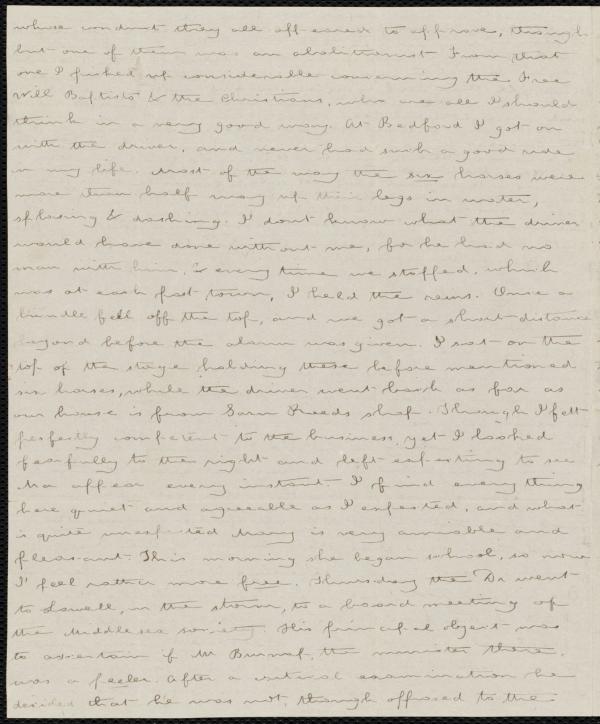 whose conduct they all appeared to approve, though
but one of them was an abolitionist From that
one I picked up considerable concerning the Free
Will Baptists & the Christians, who are all I should
think in a very good way. At Bedford I got on
with the driver, and never had such a good ride
in my life. Most of the way the six horses were
more than half way up their legs in water,
splashing & dashing. I don't know what the driver
would have done without me, for he had no
man with him, & every time we stopped, which
was at each post town, I held the reins. Once a
bundle fell off the top, and we got a short distance
beyond before the alarm was given. I sat on the
top of the stage holding these before mentioned
six horses, while the driver went back as far as
our house is from Sam Reeds shop. Though I felt
perfectly competent to the business, yet I looked
fearfully to the right and left expecting to see
Ma appear every instant. I find every thing
here quiet and agreeable as I expected, and what
is quite unexpected Mary is very amiable and
pleasant. This morning she began school, so now
I feel rather more free. Thursday the Dr went
to Lowell, in the storm, to a board meeting of
the Middlesex society. His principal object was
to ascertain if Mr the minister there.
was a feeler. After a critical examination he
decided that he was not, though opposed to the